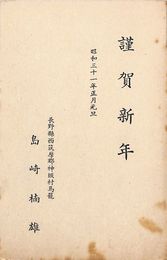 謹賀新年
昭和三十一年正月元旦
長野縣西筑摩郡神坂村馬籠
島崎楠雄